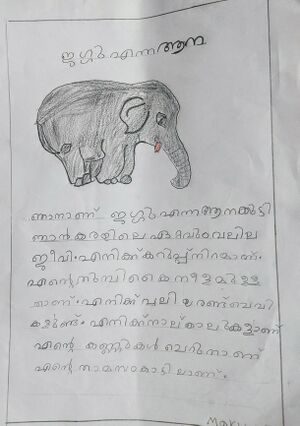 ജഗ്ഗു എന്ന ആന
ഞാനാണ് ജഗ്ഗു എന്ന ആനക്കുട്ടി
ഞാൻ കരയിലെ ഏറ്റവും വലിയ
ജീവി. എനിക്ക് കറുപ്പ് നിറമാണ്.
എന്റെ തുമ്പികൈ നീളമുള്ള
താണ്. എനിക്ക് വലിയ രണ്ട് ചെവി
കളുണ്ട്. എനിക്ക് നാല് കാലുകളാണ്
എന്റെ കണ്ണുകൾ ചെറുതാണ്
എന്റെ താമസം കാട്ടിലാണ്.